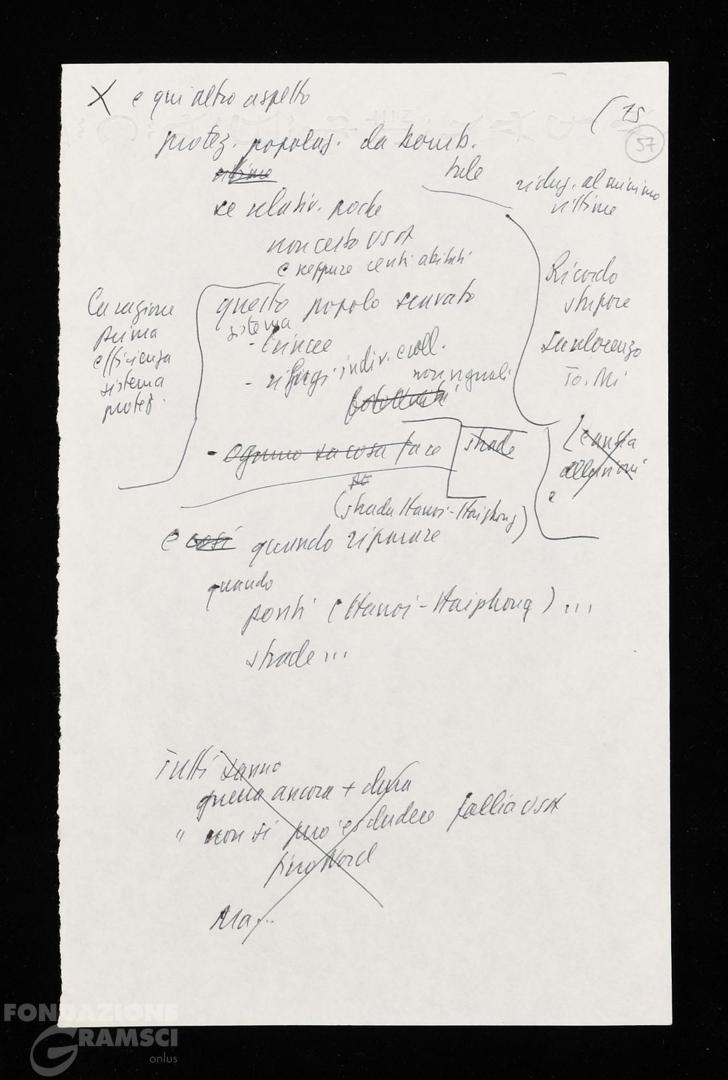 X e qui altro aspetto
(15
57
protez. popolaz. da bomb.
vittime
tale
riduz. al minimo
vittime
se relativ. poche
non certo USA
e neppure centri abitati
questo popolo scavato
sistema
- trincee
- rifugi indiv. e coll.
non uguali
La ragione
prima
efficienza
sistema
protez.
Ricordo
stupore
Sanlorenzo
To. Mi
- ognuno sa cosa fare
strade
(strada Hanoi-Haiphong)
e così quando riparare
quando
ponti (Hanoi-Haiphong) ...
strade ...
Tutti sanno
guerra ancora + dura
" non si può escludere follia USA
fino Nord
Ma...
FONDAZIONE
GRAMSCI
onlus